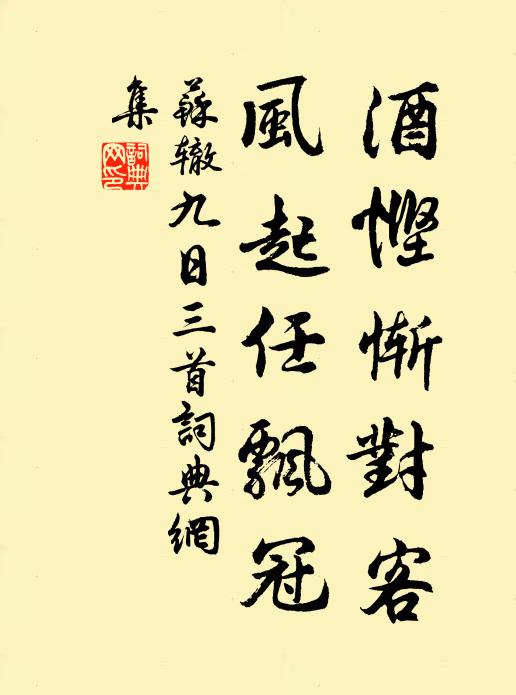 酒慳慚對客
風起任飄冠
蘇轍九日三首詞典網
集
詞典
网印